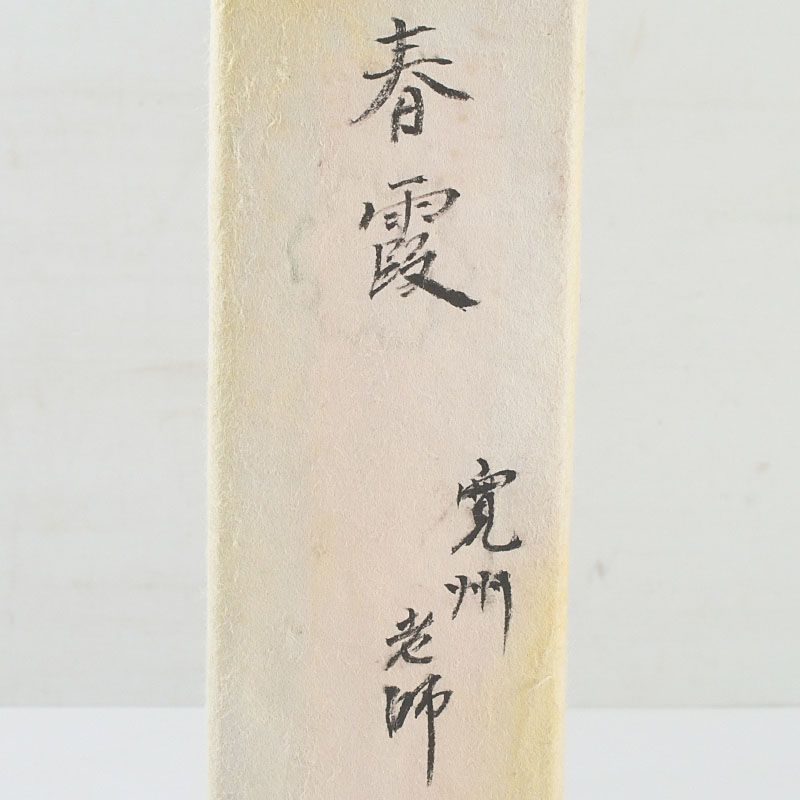 春霞
寛州
老師